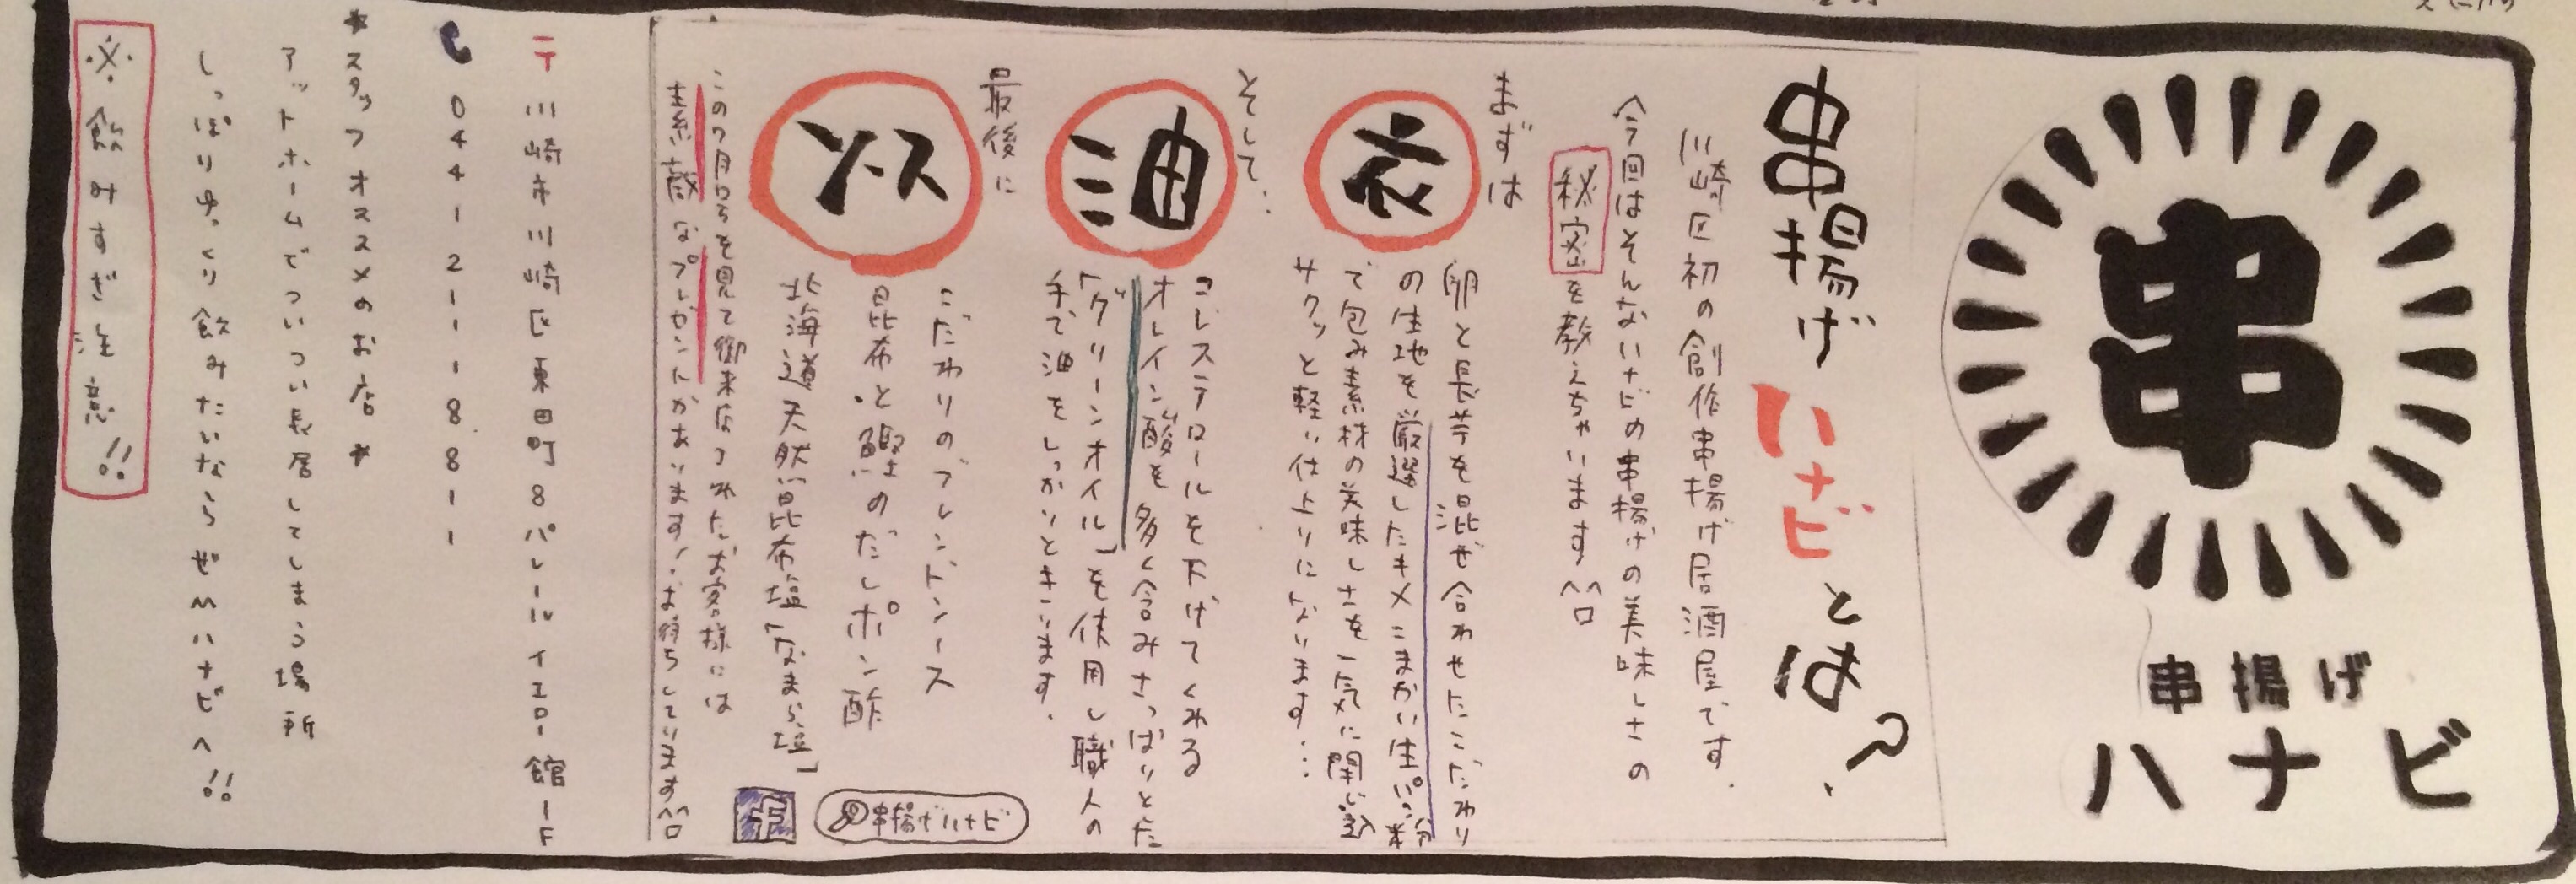 串
串揚げ
ハナビ
串揚げハナビとは?
川崎区初の創作串揚げ居酒屋です.
今回はそんなハナビの串揚げの美味しさの
秘密を教えちゃいます
まずは
衣
卵と長芋を混ぜ合わせたこだわり
の生地を厳選したキメこまかい生パン粉
で包み素材の美味しさを一気に閉じ込
サクッと軽い仕上りになります…
そして..
油
コレステロールを下げてくれる
オレイン酸を多く含みさっぱりとした
「グリーンオイル」を使用し職人の
手で油をしっかりときります.
最後に
ソース
こだわりのブレンドソース
昆布と鰹のだしポン酢
北海道天然昆布塩「なまら塩」
串揚げハナビ
このカ月ログを見て御来店されたお客様には
素敵なプレゼントがあります!お待ちしています
〒川崎市川崎区東田町8パレールイエロー館1F
044-211-8811
*スタッフオススメのお店*
アットホームでついつい長居してしまう場所
しっぽりゆっくり飲みたいならぜひハナビへ!!
※飲みすぎ注意!!